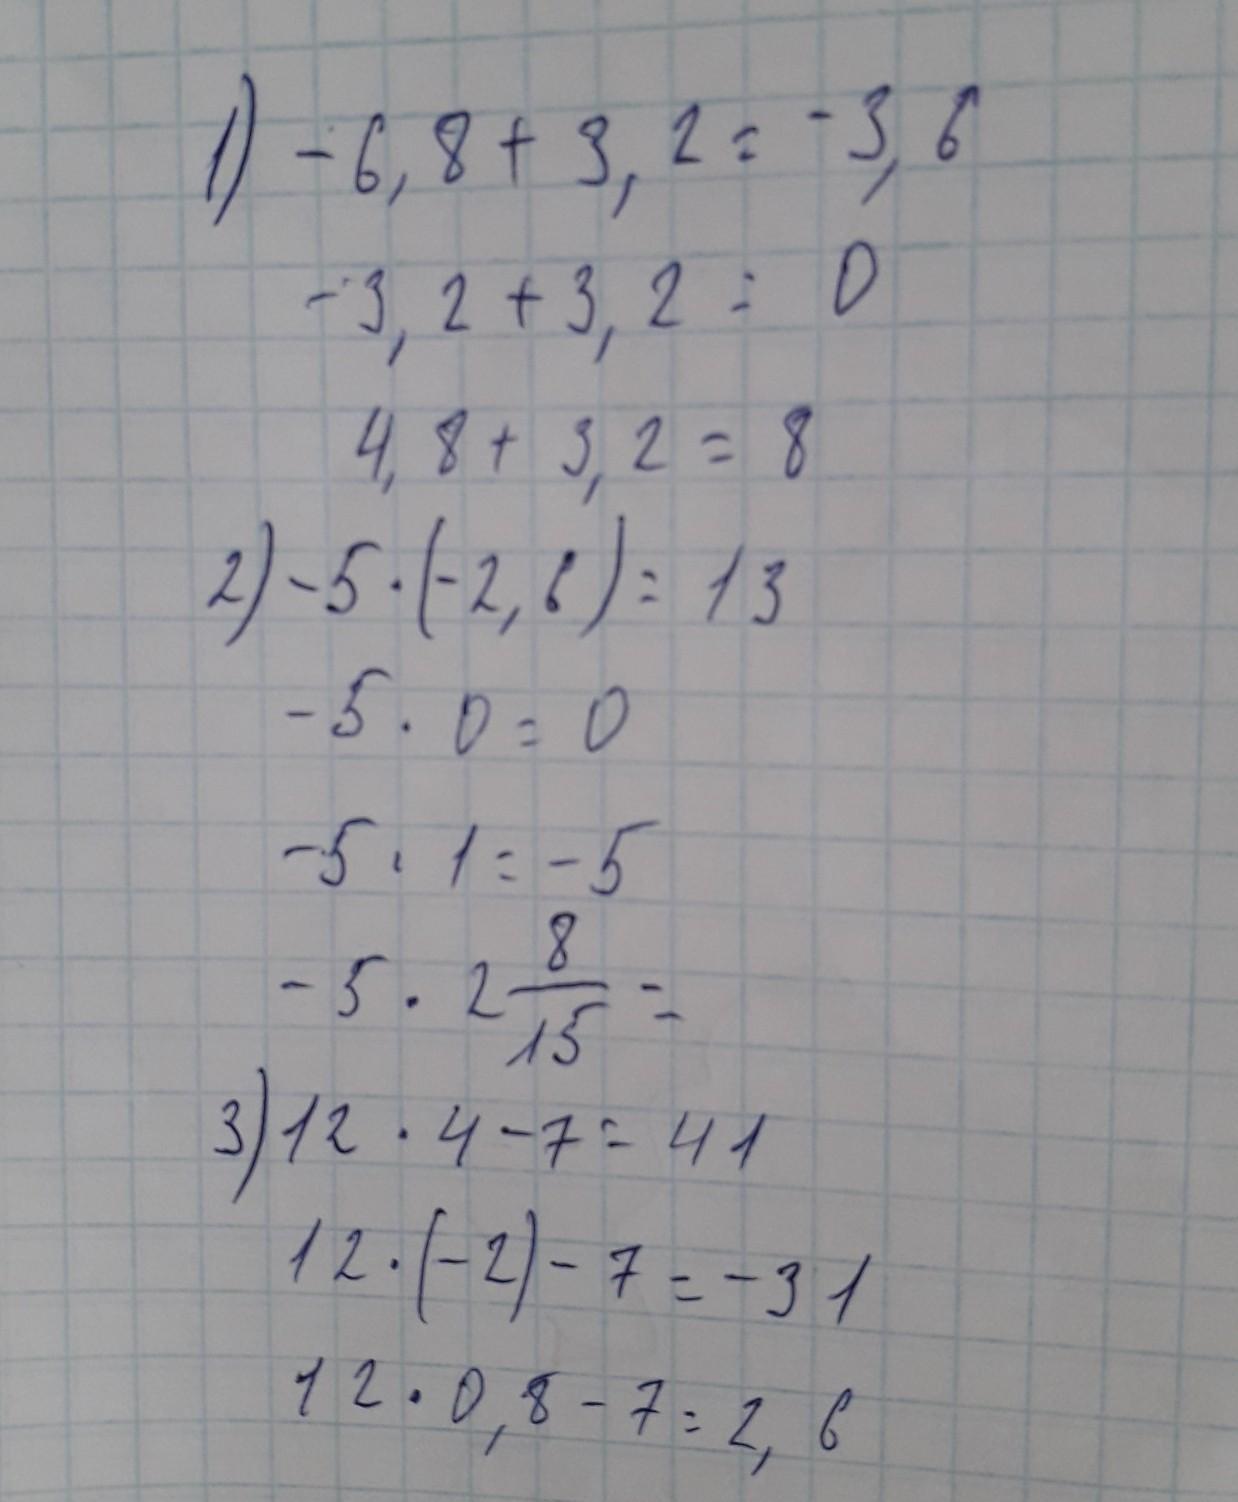 1) -6,8 + 3,2 = -3,6
-3,2 + 3,2 = 0
4,8 + 3,2 = 8
2) -5 · (-2,6) = 13
-5 · 0 = 0
-5 · 1 = -5
-5 · 2 8/15 =
3) 12 · 4 - 7 = 41
12 · (-2) - 7 = -31
12 · 0,8 - 7 = 2,6